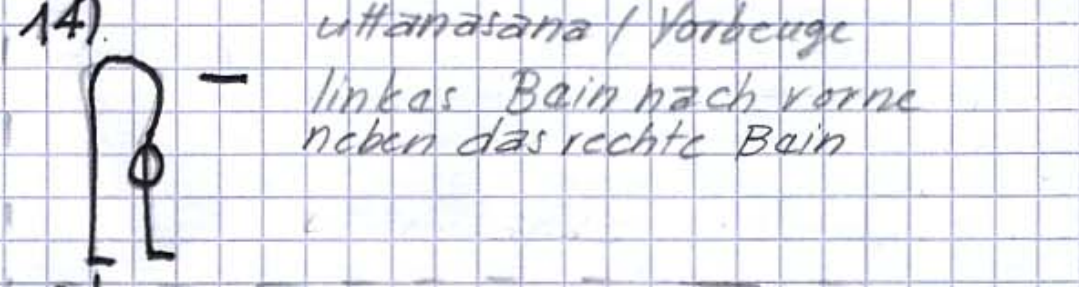 14).
uttanasana / Vorbeuge
–
linkes Bein nach vorne
neben das rechte Bein